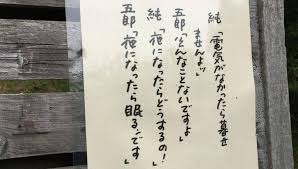 純「電気がなかったら暮せ
ませんよッ」
五郎「そんなことないですよ」
純「夜になったらどうするの!」
五郎「夜になったら眠るンです」